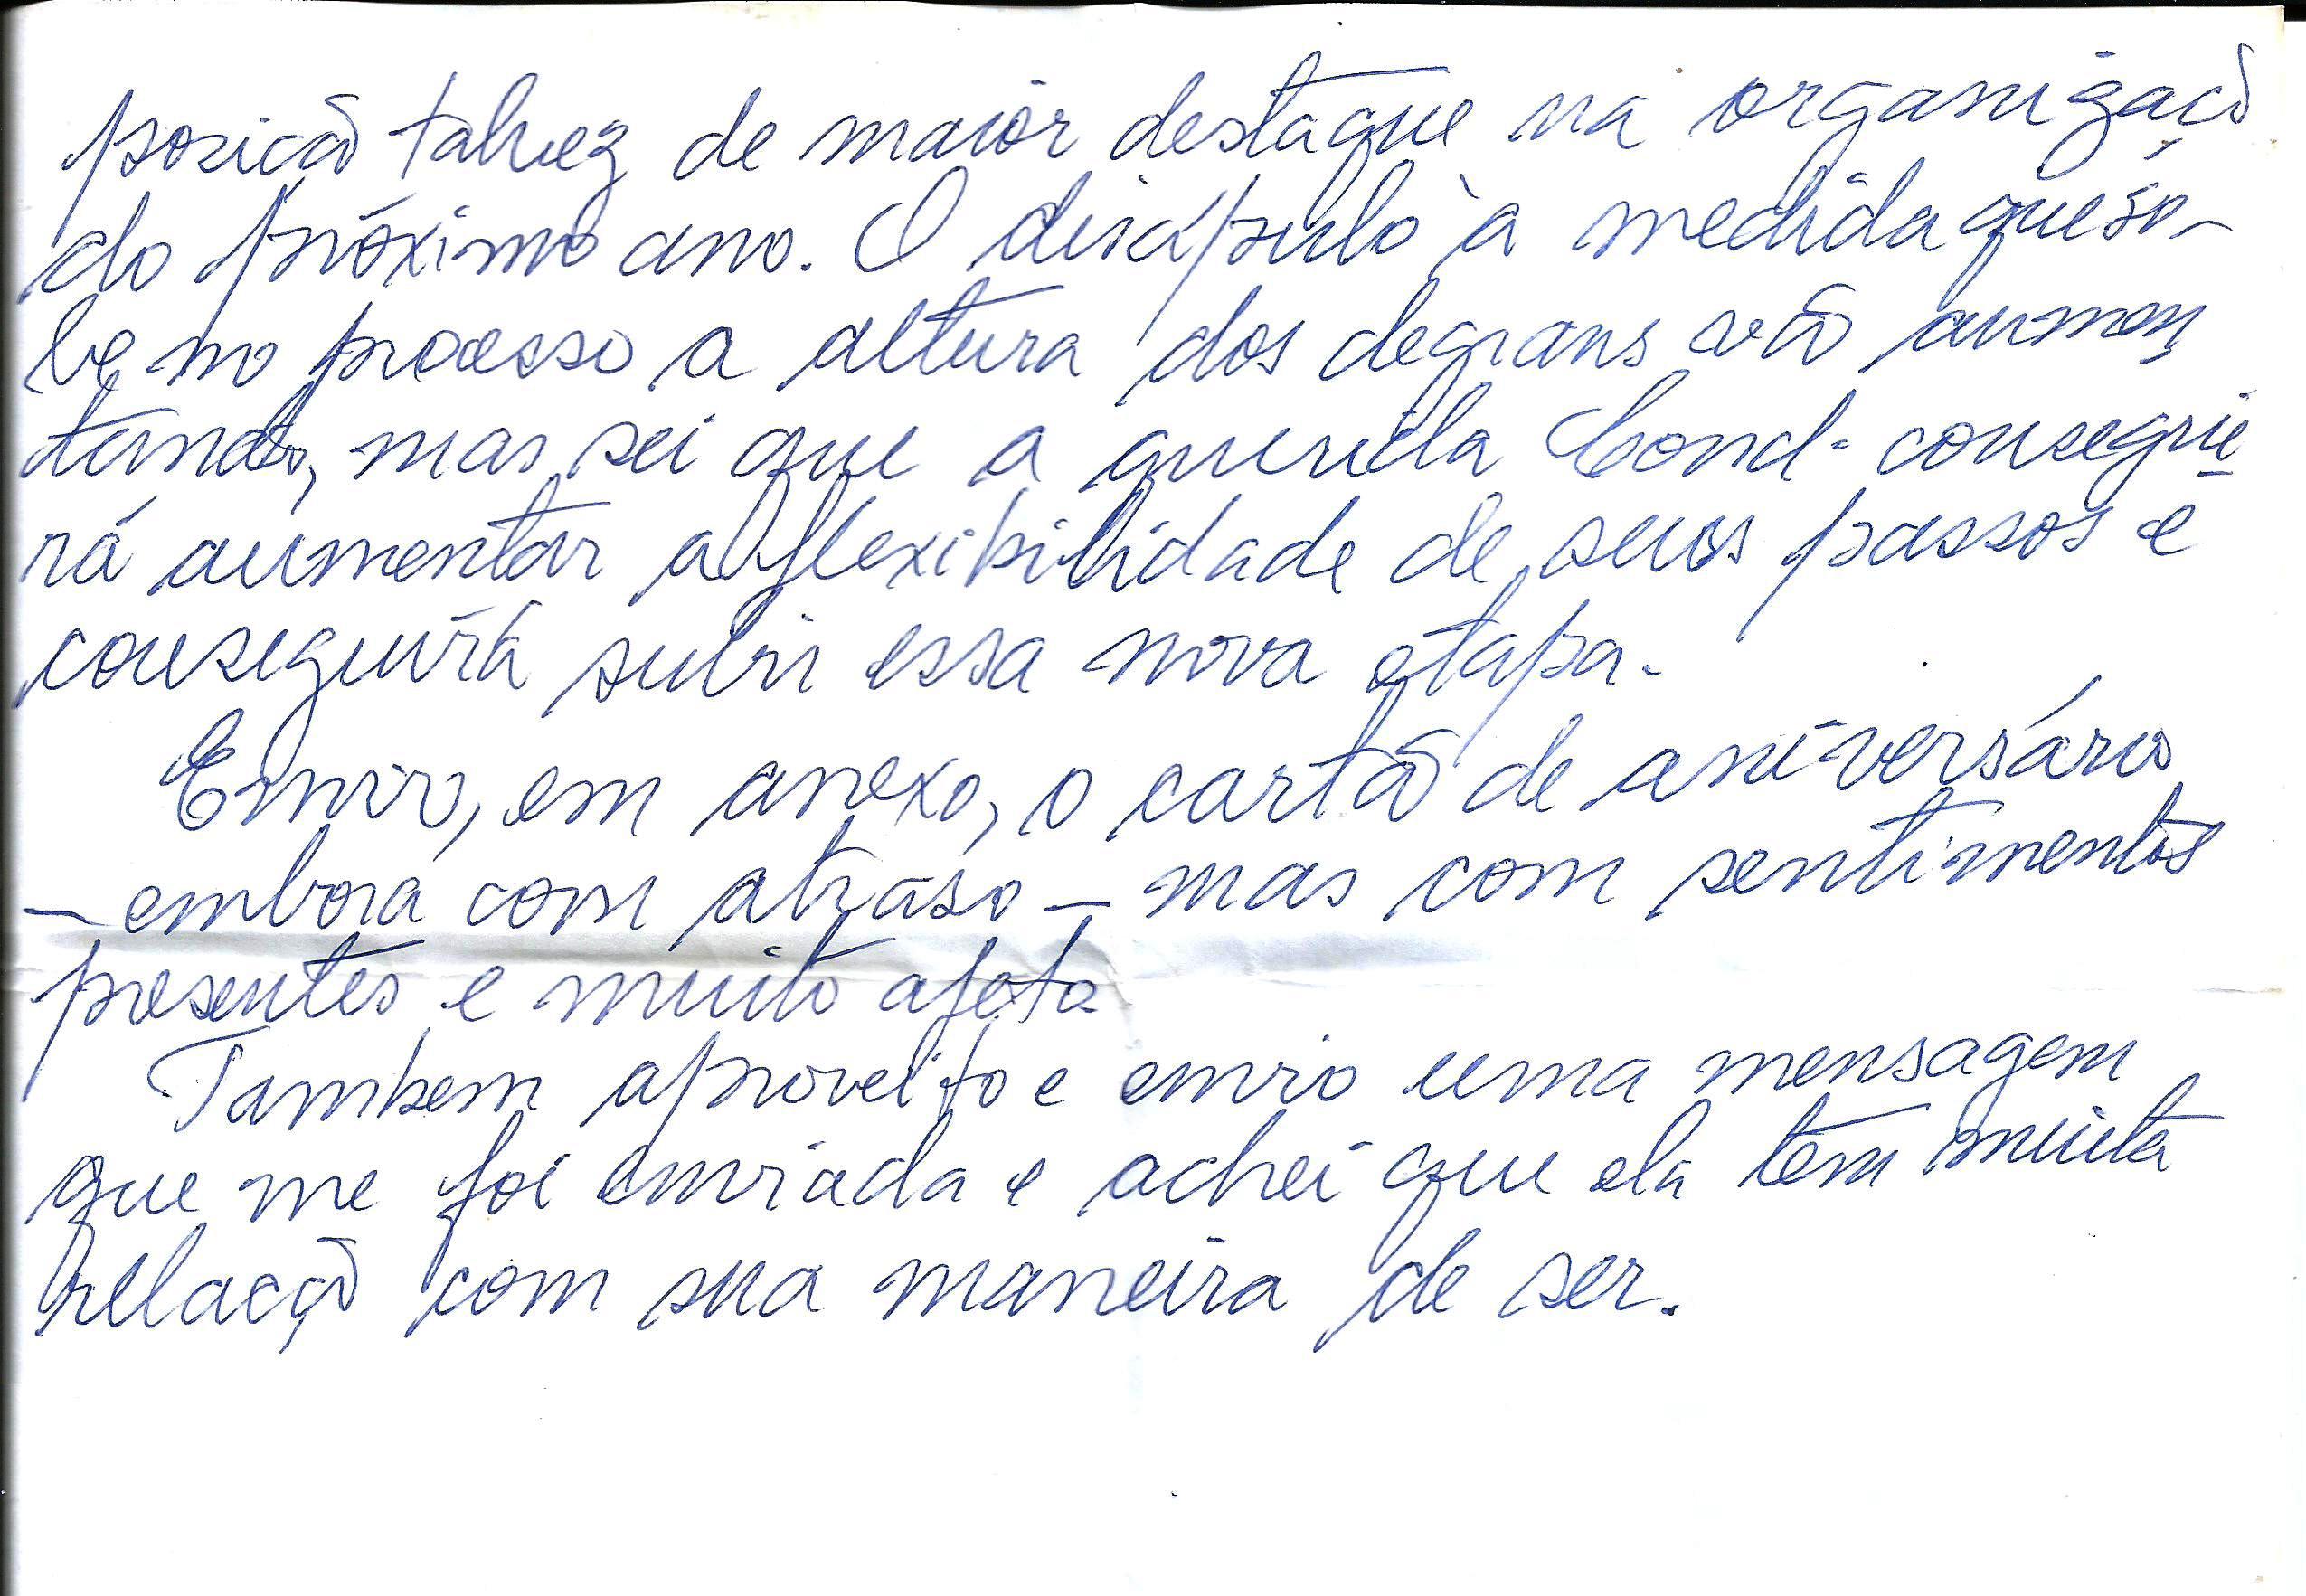 posição talvez de maior destaque na organização
do próximo ano. O discípulo à medida que so-
be no processo a altura dos degraus vão aumen
tando, mas sei que a querida Cond. consegui
rá aumentar a flexibilidade de seus passos e
conseguirá subir essa nova etapa.
Envio, em anexo, o cartão de aniversário
– embora com atraso – mas com sentimentos
presentes e muito afeto.
Tambem aproveito e envio uma mensagem
que me foi enviada e achei que ela tem muita
relação com sua maneira de ser.